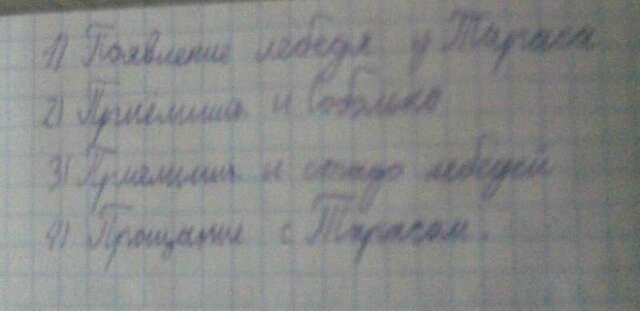 1) Появление лебедя у Тараса
2) Приёмыша и Соболько
3) Приёмыш и стадо лебедей
4) Прощание с Тарасом.